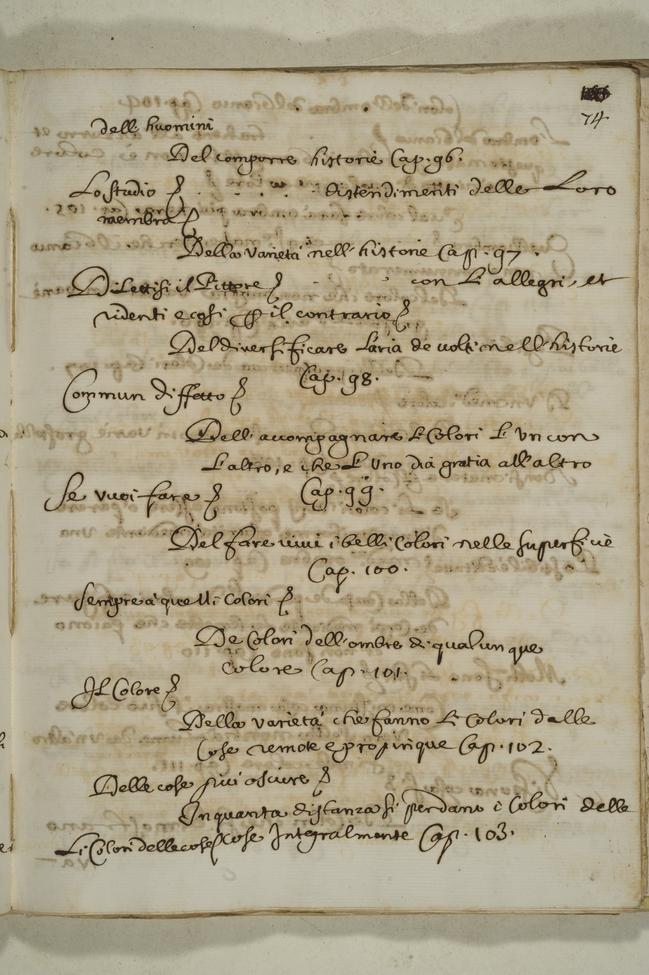 74
dell huomini
Del comporre historie Cap. 96.
Lo studio . . . . distendimenti delle Loro
membra
Della varietà nell'historie Cap. 97.
Dilettisi il Pittore . . con L'allegri, et
ridenti e cosi il contrario
Del diversificare l'aria de volti nell'historie
Cap. 98.
Commun diffetto
Dell accompagnare L Colori L'un con
L'altro, e che L'uno dia gratia all'altro
Cap. 99.
Se vuoi fare
Del fare vivi i belli Colori nelle superficie
Cap. 100.
Sempre a quelli Colori
De Colori dell'ombre di qualunque
Colore Cap. 101.
Il Colore
Della varietà che fanno Li Colori dalle
Cose remote e propinque Cap. 102.
Delle cose piu oscure
In quanta distanza si perdano i Colori delle
Li Colori delle cose Cose Integralmente Cap. 103.